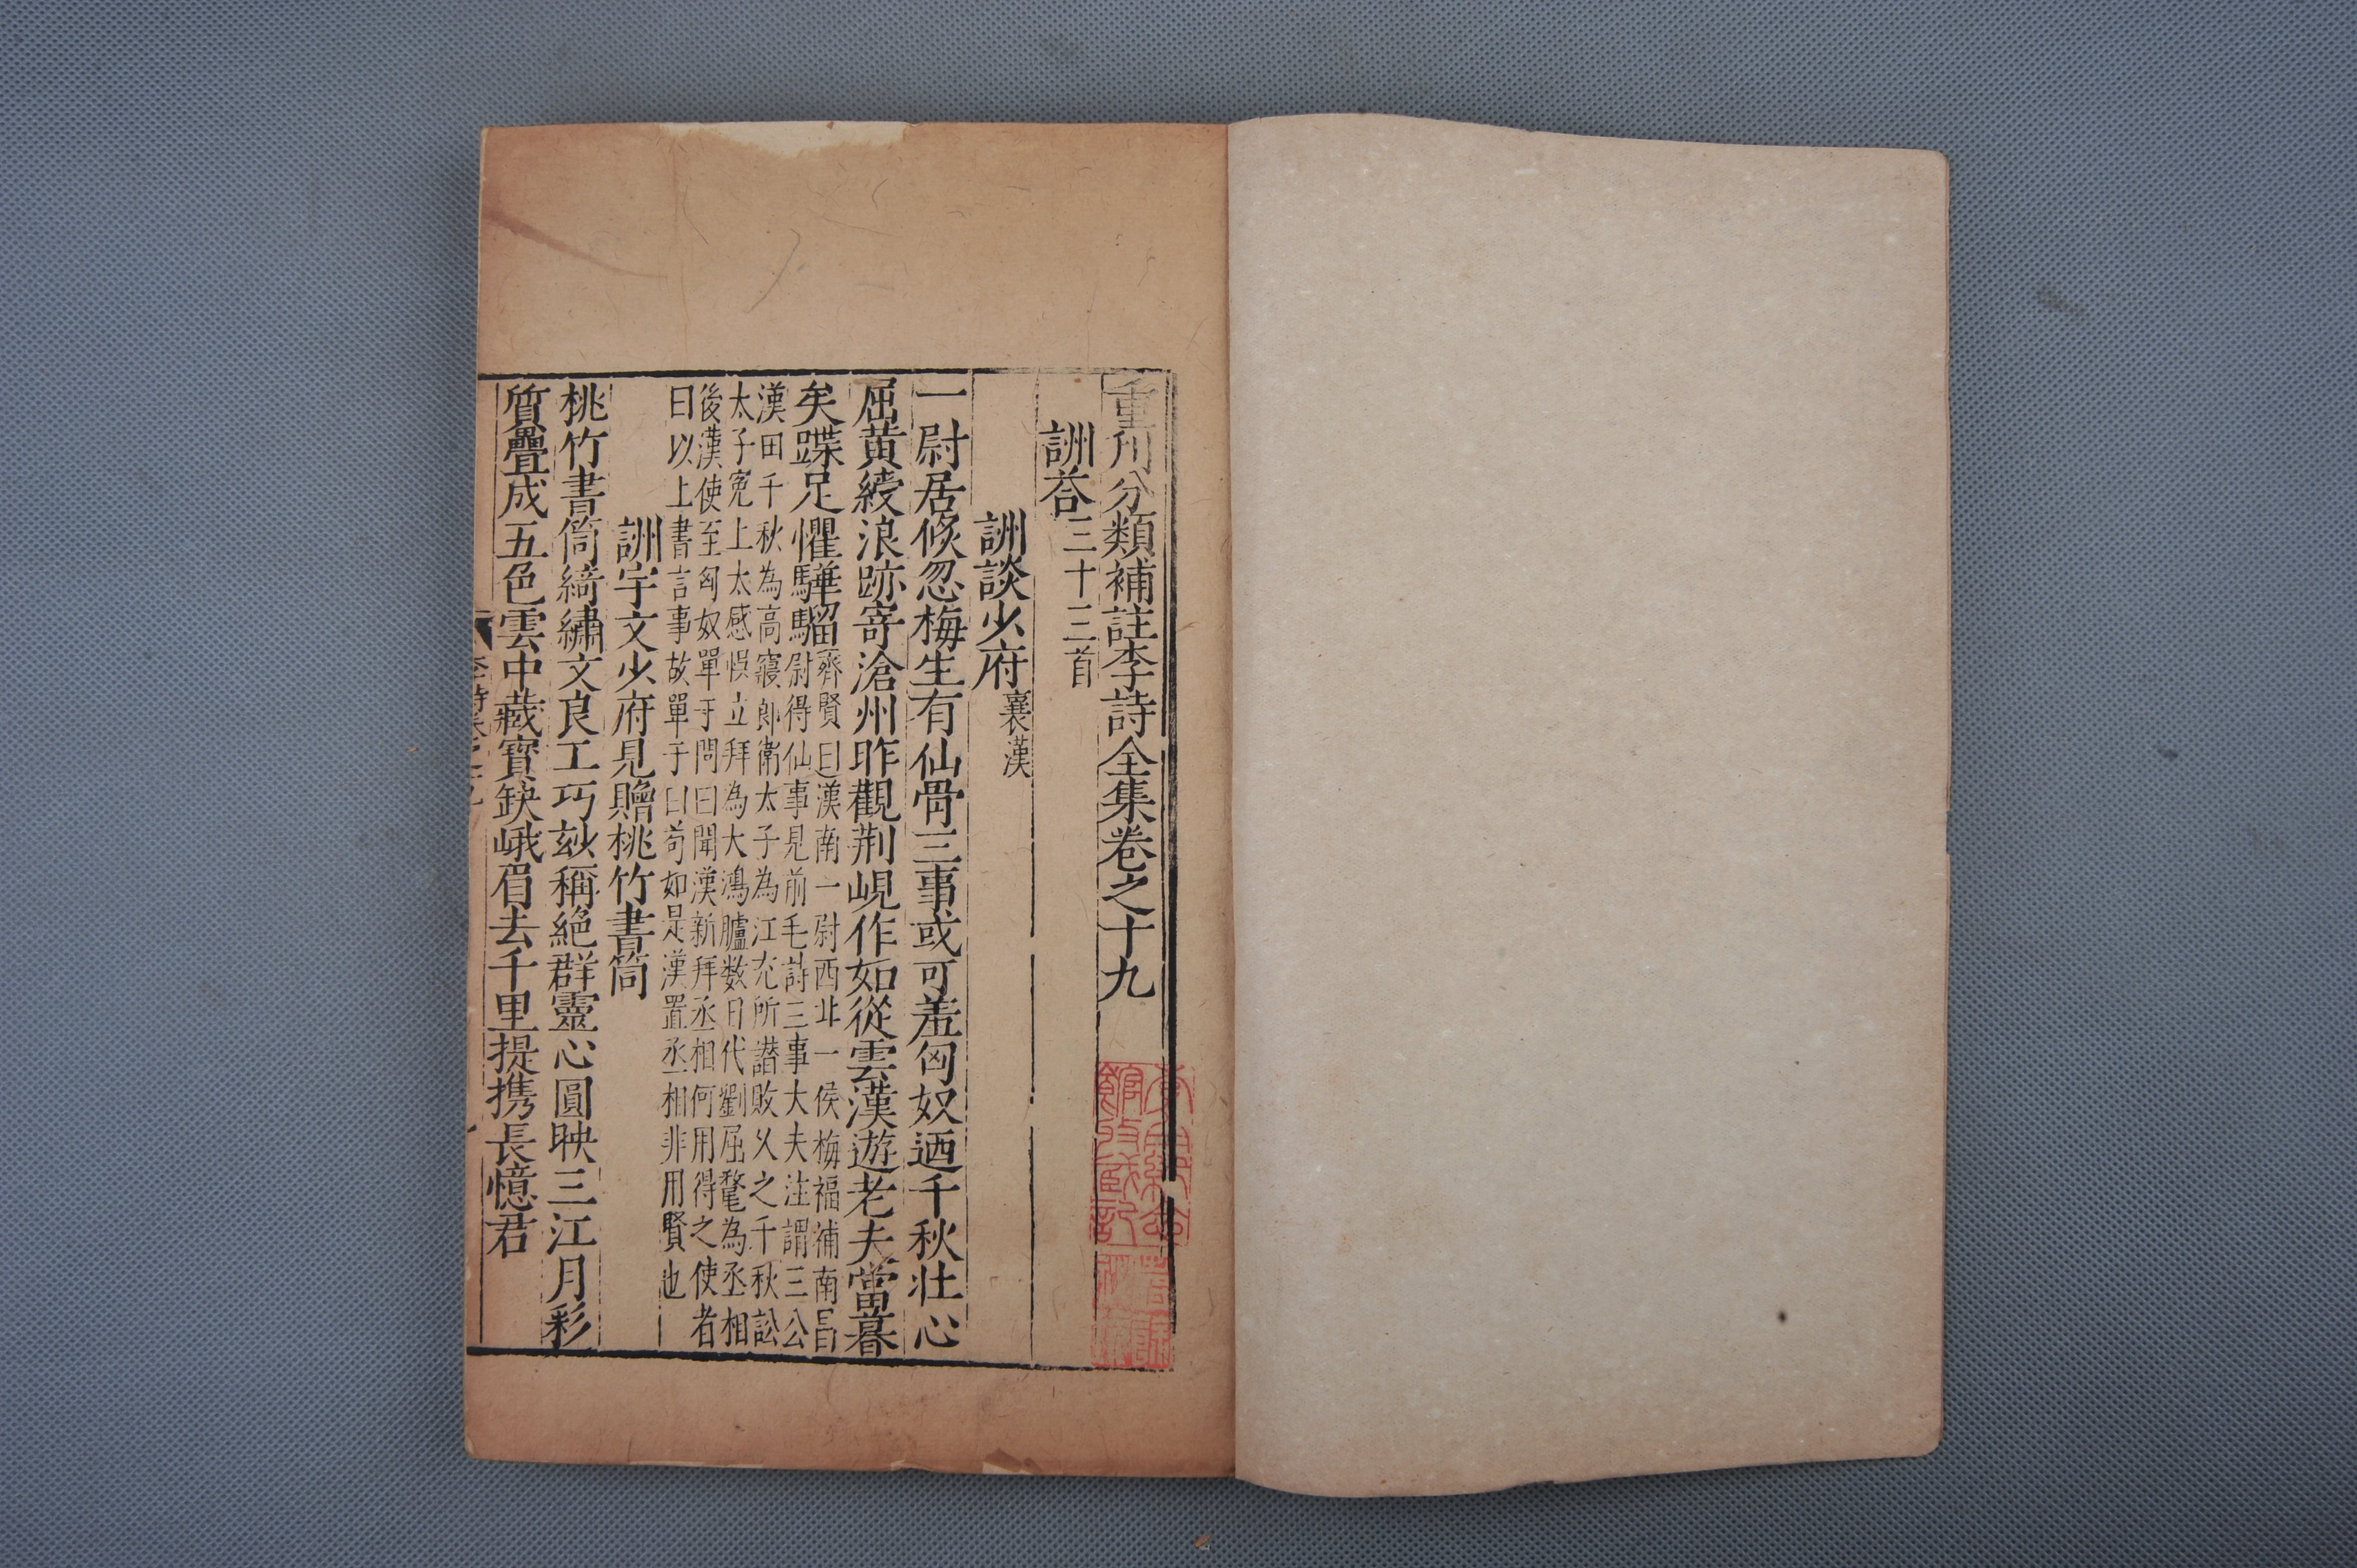 重刋分類補註李詩全集卷之十九
詶荅三十三首
詶談少府襄漢
一尉居倐忽梅生有仙骨三事或可羞匈奴迺千秋壯心
屈黄綬浪跡寄滄州昨觀荆峴作如從雲漢遊老夫當暮
矣蹀足懼驊騮
齊賢曰漢南一尉西北一侯梅福補南昌
尉得仙事見前毛詩三事大夫注謂三公
漢田千秋為高寢郎衛太子為江充所譖敗乆之千秋訟
太子寃上太感悞立拜為大鴻臚数日代劉屈氂為丞相
後漢使至匈奴單于問曰聞漢新拜丞相何用得之使者
曰以上書言事故單于曰茍如是漢置丞相非用賢也
詶宇文少府見贈桃竹書筒
桃竹書筒綺繡文良工巧玅稱絶群靈心圓映三江月彩
質疊成五色雲中藏寳䤼峨眉去千里提携長憶君